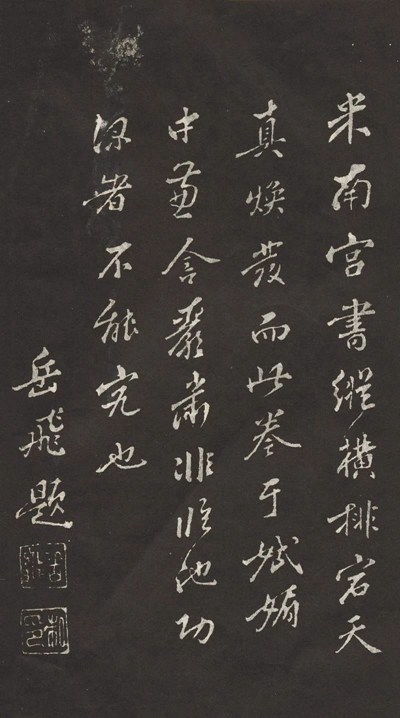 米南宮書縱橫排宕天
真煥發而此卷于娬媚
中兼含嚴肅非臨池功
深者不能究也
岳飛題